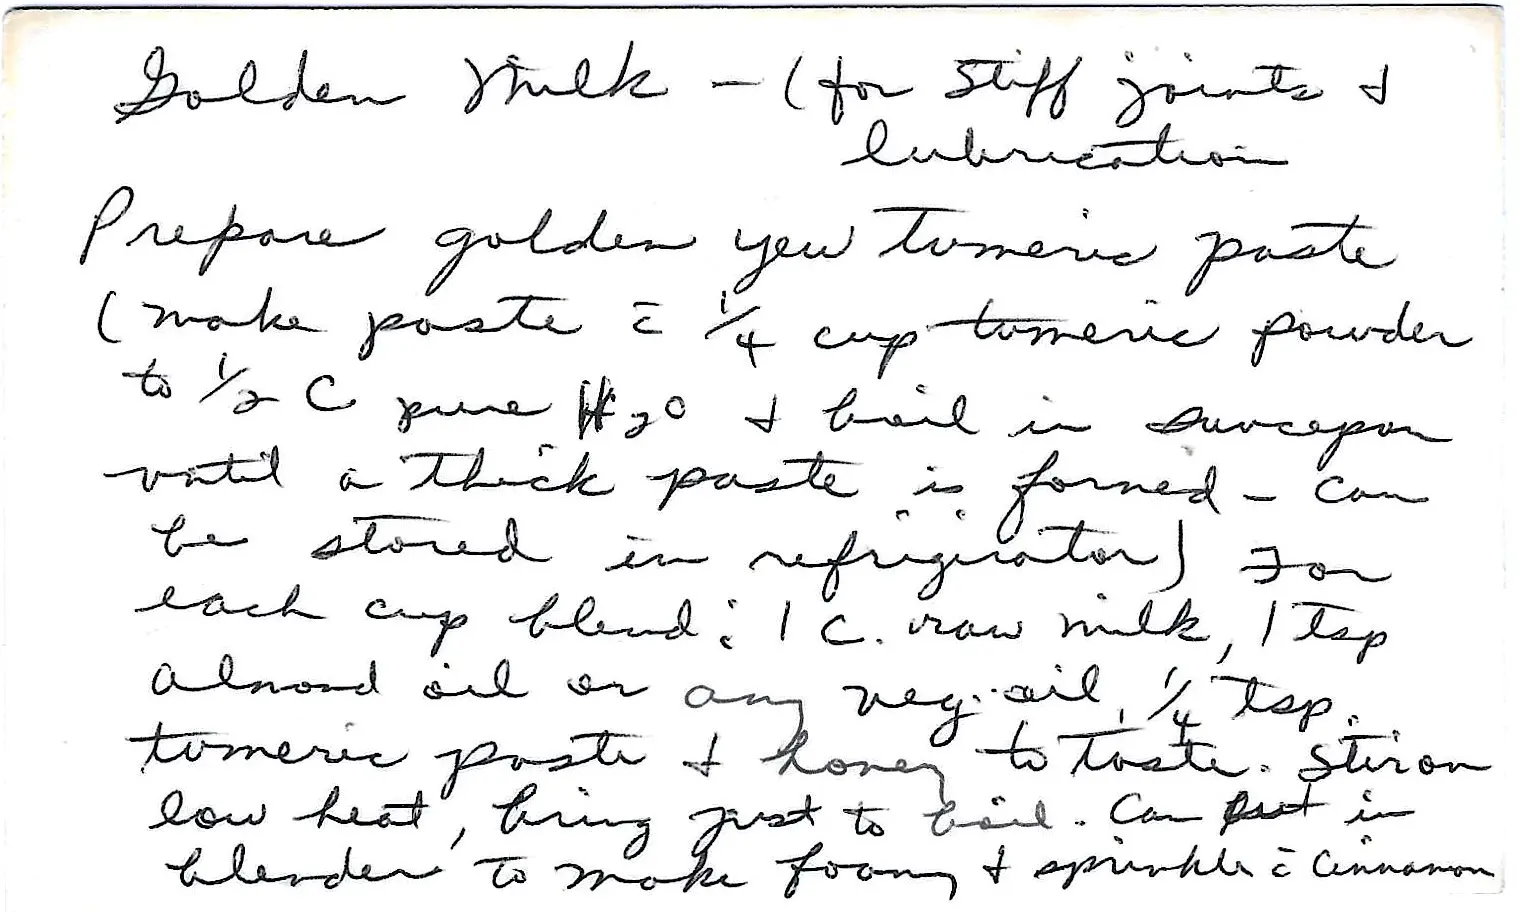 Golden Milk - (for Stiff joints &
lubrication
Prepare golden yew Tumeric paste
(make paste c̄ 1/4 cup tumeric powder
to 1/2 C pure H2O & boil in saucepan
until a thick paste is formed - can
be stored in refrigirator) For
each cup blend: 1 C. raw milk, 1 tsp
almond oil or any veg. oil, 1/4 tsp.
tumeric paste & honey to taste. Stir on
low heat, bring just to boil. Can put in
blender to make foamy & sprinkle c̄ Cinnamon